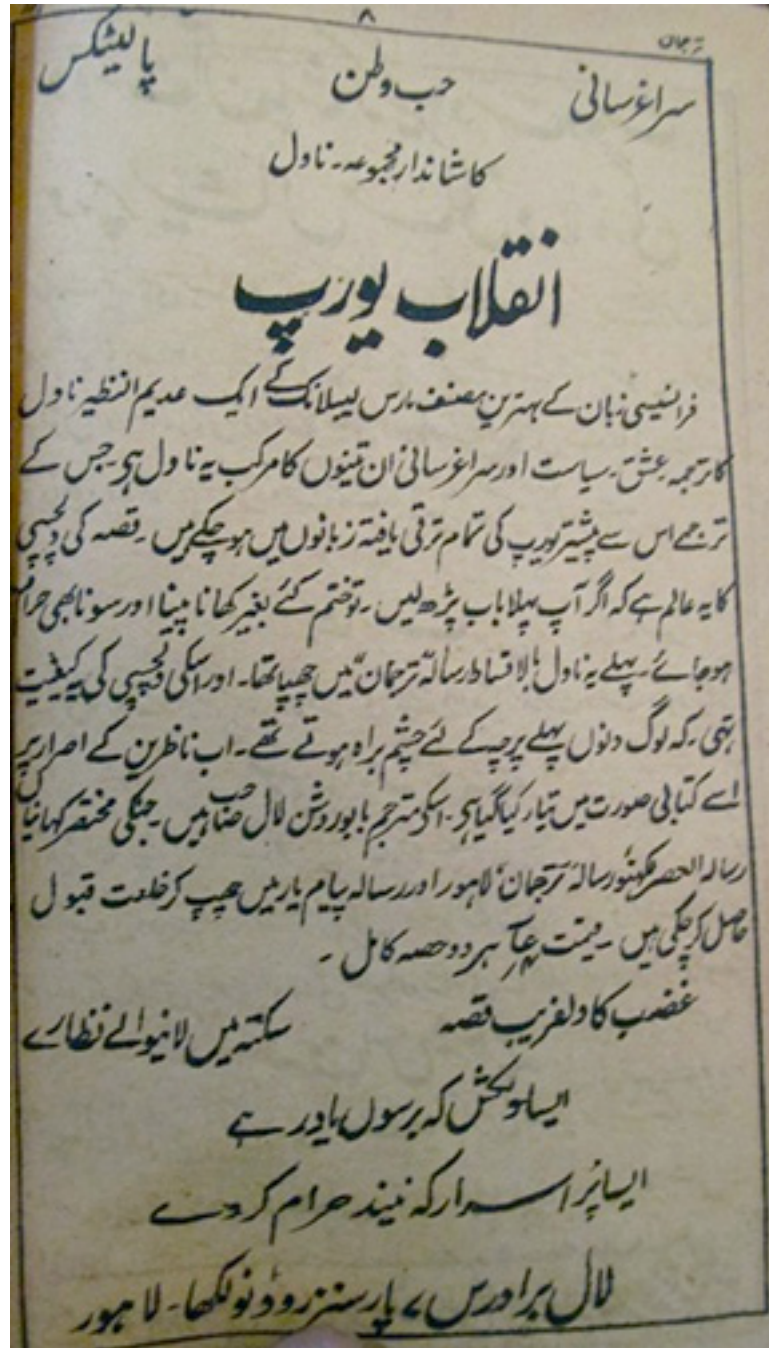 ۸
ترجمان
سراغرسانی حب وطن پالیٹکس
کا شاندار مجموعہ۔ ناول
انقلاب یورپ
فرانسیسی زبان کے بہترین مصنف مارس لیبلانک کے ایک عدیم النظیر ناول
کا ترجمہ۔ عشق۔ سیاست اور سراغرسانی ان تینوں کا مرکب یہ ناول ہی۔ جس کے
ترجمے اس سے پیشتر یورپ کی تمام ترقی یافتہ زبانوں میں ہو چکے ہیں۔ قصہ کی دلچسپی
کا یہ عالم ہے کہ اگر آپ پہلا باب پڑھ لیں۔ تو ختم کئے بغیر کھانا پینا اور سونا بھی حرام
ہو جائے۔ پہلے یہ ناول بالاقساط رسالہ "ترجمان" میں چھپا تھا۔ اور اسکی دلچسپی کی یہ کیفیت
تھی۔ کہ لوگ دنوں پہلے پرچہ کے لئے چشم براہ ہوتے تھے۔ اب ناظرین کے اصرار پر
اسے کتابی صورت میں تیار کیا گیا ہی۔ اسکی مترجم بابو روشن لال صاحب ہیں۔ جنکی مختصر کہانیاں
رسالہ العصر لکھنؤ رسالہ "ترجمان" لاہور اور رسالہ پیام یار میں چھپ کر خلعت قبول
حاصل کر چکی ہیں۔ قیمت ہر دو حصہ کامل۔
غضب کا دلفریب قصہ سکتہ میں لانیوالے نظارے
ایسا دلکش کہ برسوں یاد رہے
ایسا پُر اسرار کہ نیند حرام کر دے
لال برادرس ۷ پارسنز روڈ نولکھا۔ لاہور